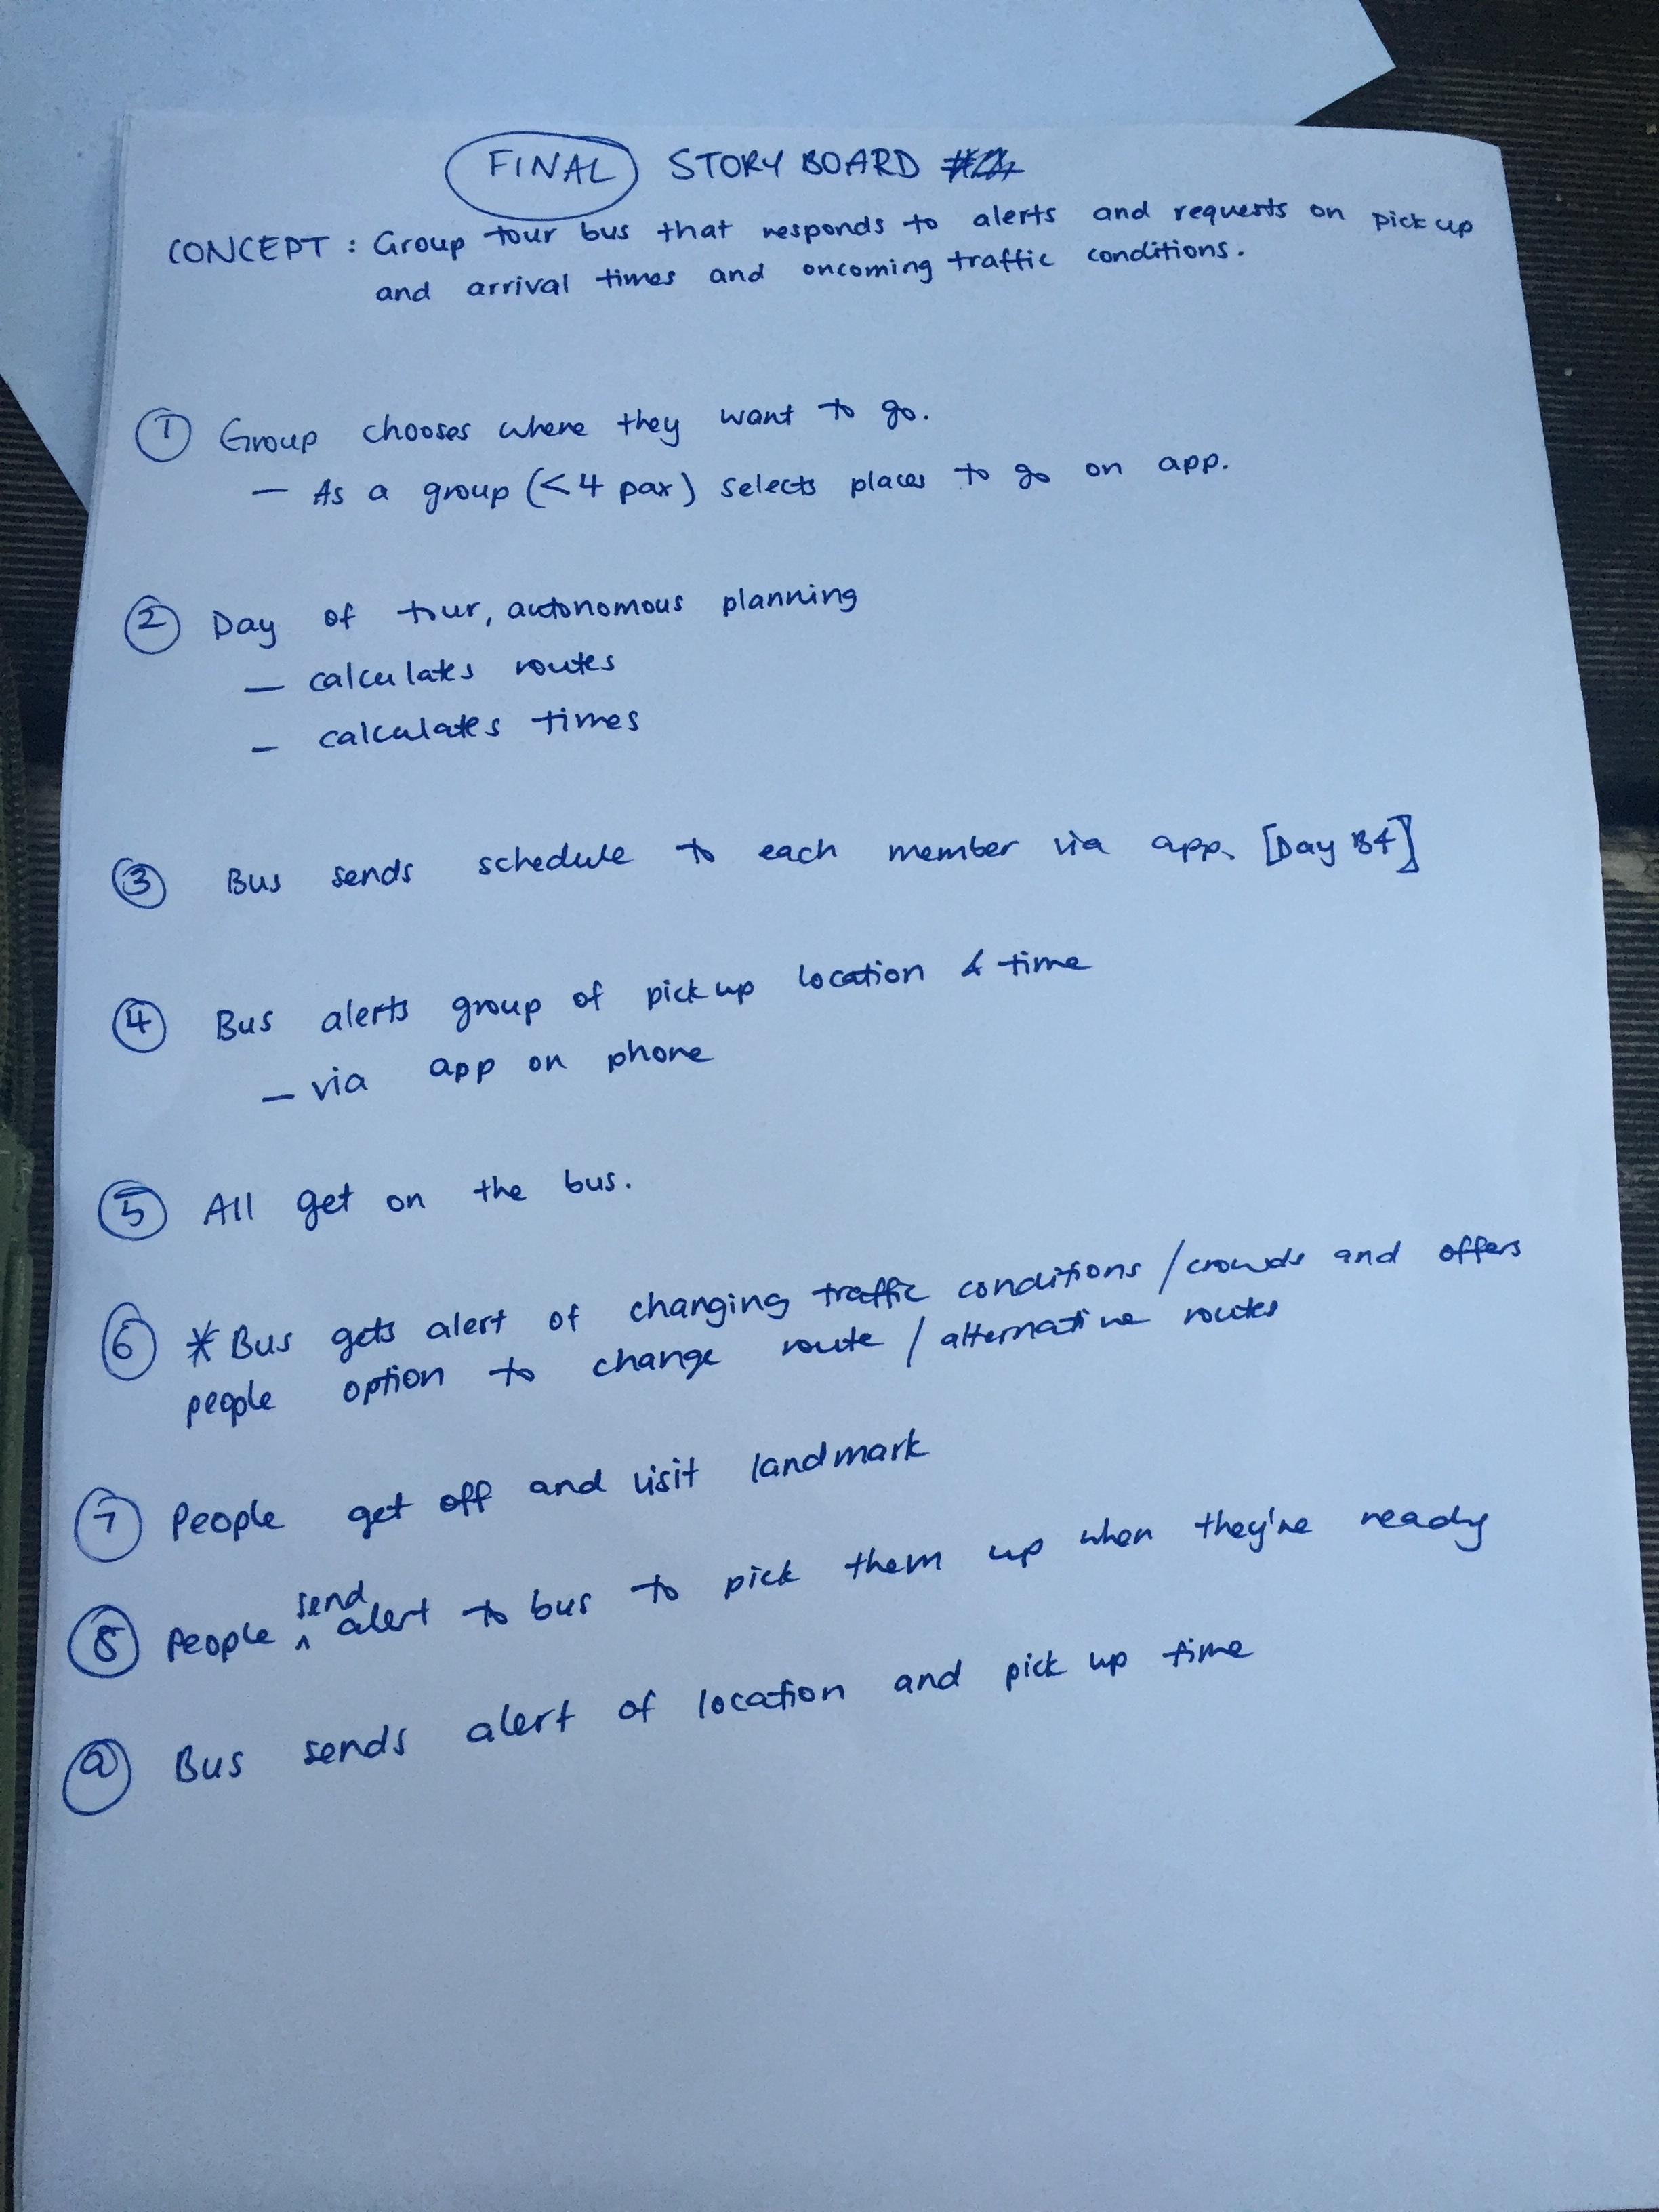 FINAL STORY BOARD
CONCEPT : Group tour bus that responds to alerts and requests on pick up
and arrival times and oncoming traffic conditions.
1 Group chooses where they want to go.
— As a group (<4 pax) selects places to go on app.
2 Day of tour, autonomous planning
— calculates routes
— calculates times
3 Bus sends schedule to each member via app. [Day B4]
4 Bus alerts group of pick up location & time
— via app on phone
5 All get on the bus.
6 * Bus gets alert of changing traffic conditions / crowds and offers
people option to change route / alternative routes
7 People get off and visit landmark
8 People send alert to bus to pick them up when they're ready
9 Bus sends alert of location and pick up time